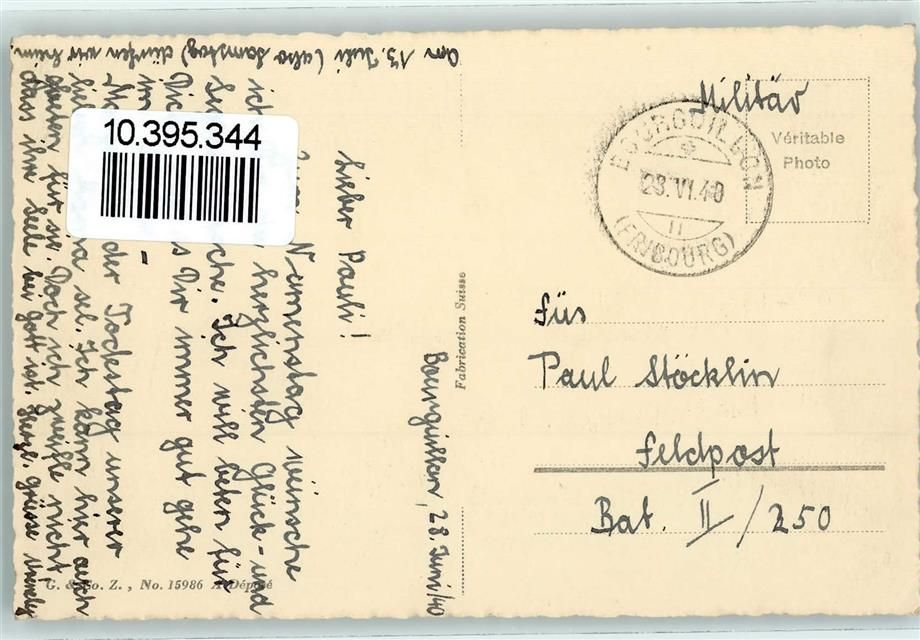 Bourguillon, 28. Juni/40
Lieber Pauli!
Namenstag wünsche
ich herzlichsten Glück- und
Ich will beten für
Dir immer gut gehe
der Todestag unserer
sel. Ich kann hier auch
beten für sie. Doch ich zweifle nicht
dass ihre Seele bei Gott ist. Herzl. Grüsse
Am 13. Juli (also Samstag) dürfen wir heim
10.395.344
Militär
Véritable
Photo
BOURGUILLON
28.VI.40
II
(FRIBOURG)
Fabrication Suisse
Füs
Paul Stöcklin
Feldpost
Bat. II/250
G. & Co. Z., No. 15986 A Déposé